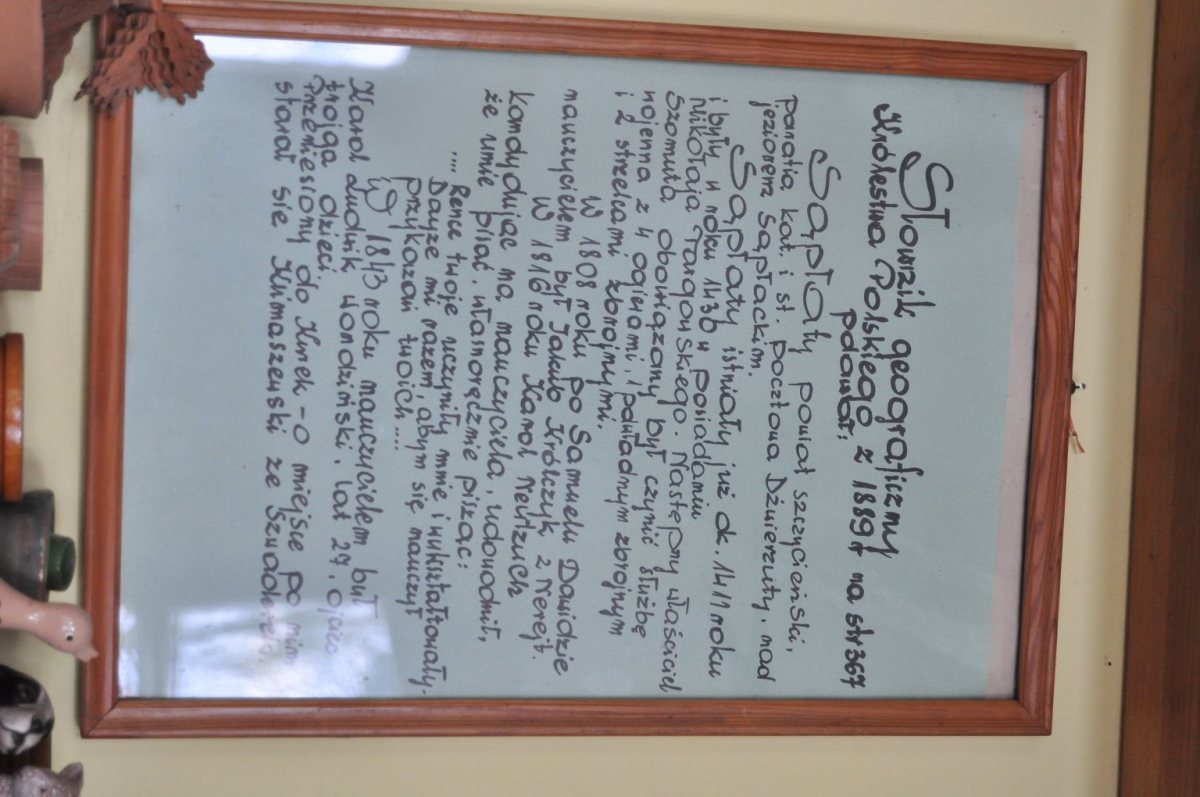 Słownik geograficzny
Królestwa Polskiego z 1889 r na str 367
podawał:
Sąpłaty powiat szczycieński,
parafia kat. i st. pocztowa Dźwierzuty, nad
jeziorem Sąpłackim.
Sąpłaty istniały już ok. 1411 roku
i były w roku 1436 w posiadaniu
Mikołaja Targowskiego. Następny właściciel
Szomuta obowiązany był czynić służbę
wojenną z 4 ogierami, 1 powadnym zbrojnym
i 2 strzelcami zbrojnymi.
W 1808 roku po Samuelu Dawidzie
nauczycielem był Jakub Królczyk z Nerejt.
W 1816 roku Karol Neitzuch
kandydując na nauczyciela, udowodnił,
że umie pisać, własnoręcznie pisząc:
.... Rence twoje uczyniły mnie i wukształtowały.
Dayże mi razem, abym się nauczył
przykazań twoich....
W 1843 roku nauczycielem był
Karol Ludwik Wondziński, lat 27, ojciec
trojga dzieci.
Przeniesiony do Kurek - O miejsce po nim
starał się Klimaszewski ze